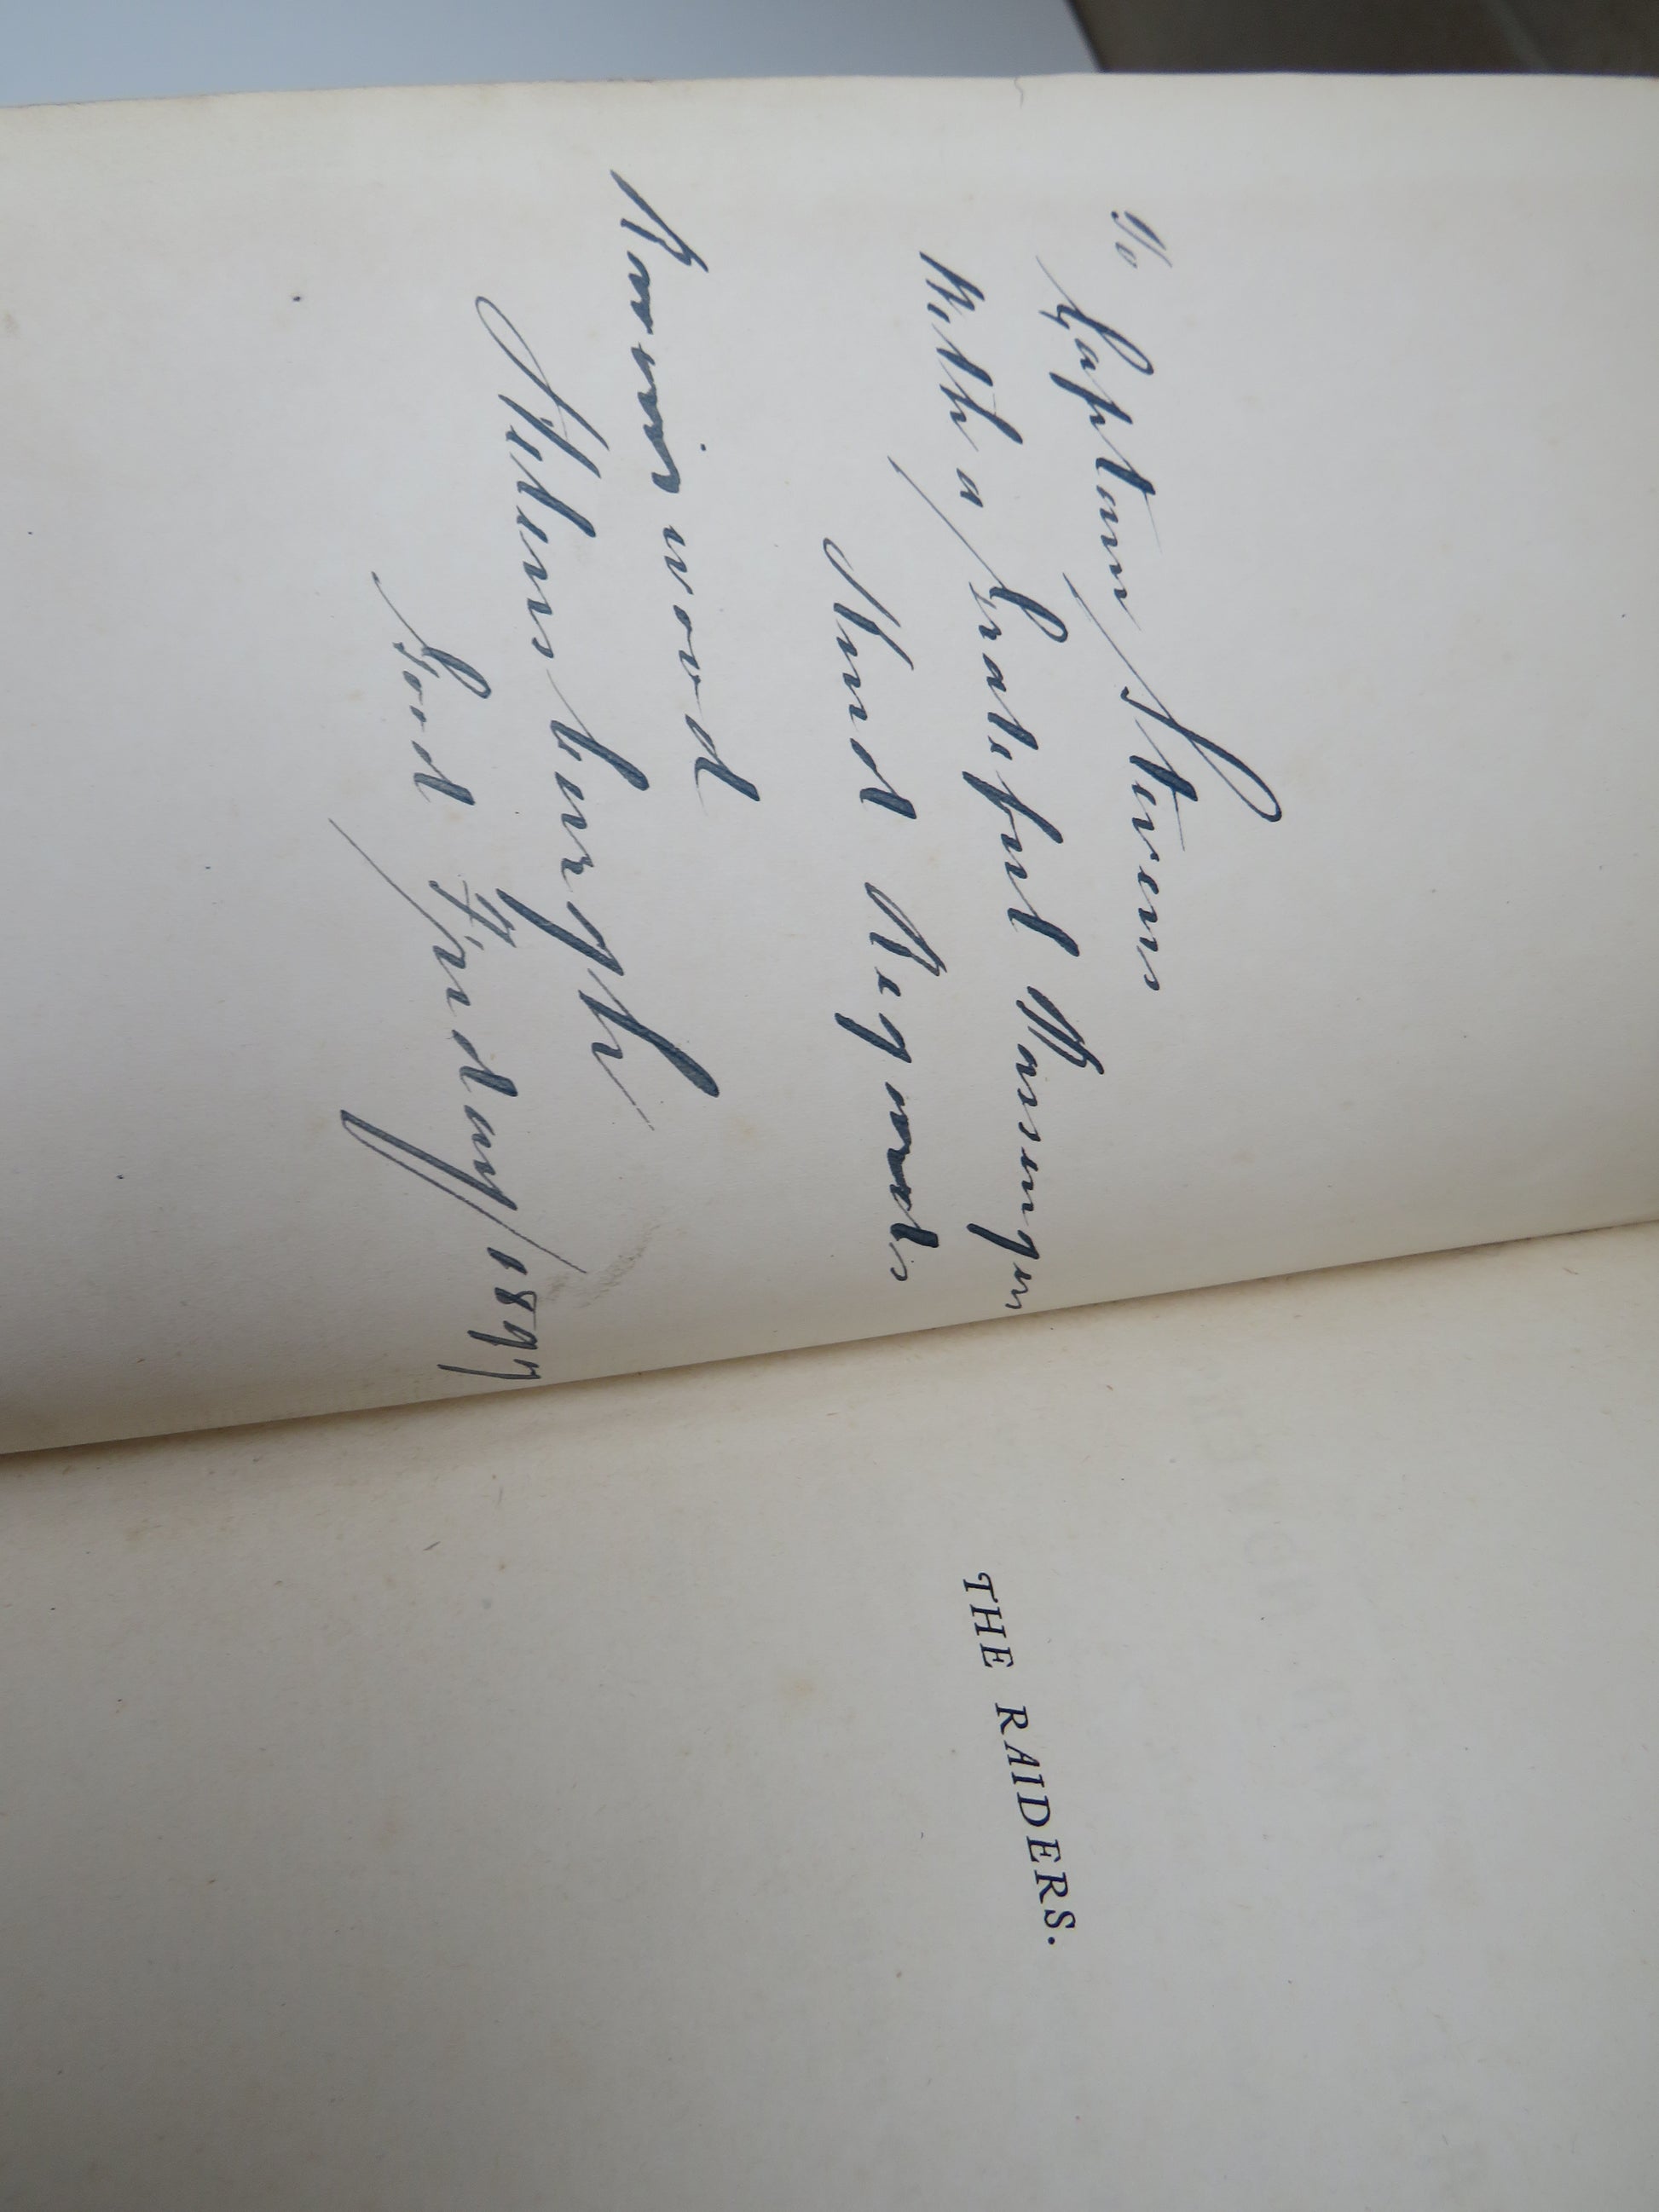 To
Captain Stevens
With a Grateful Passenger
Kind Regards
wood
Helensburgh
Good Friday 1897
THE RAIDERS.